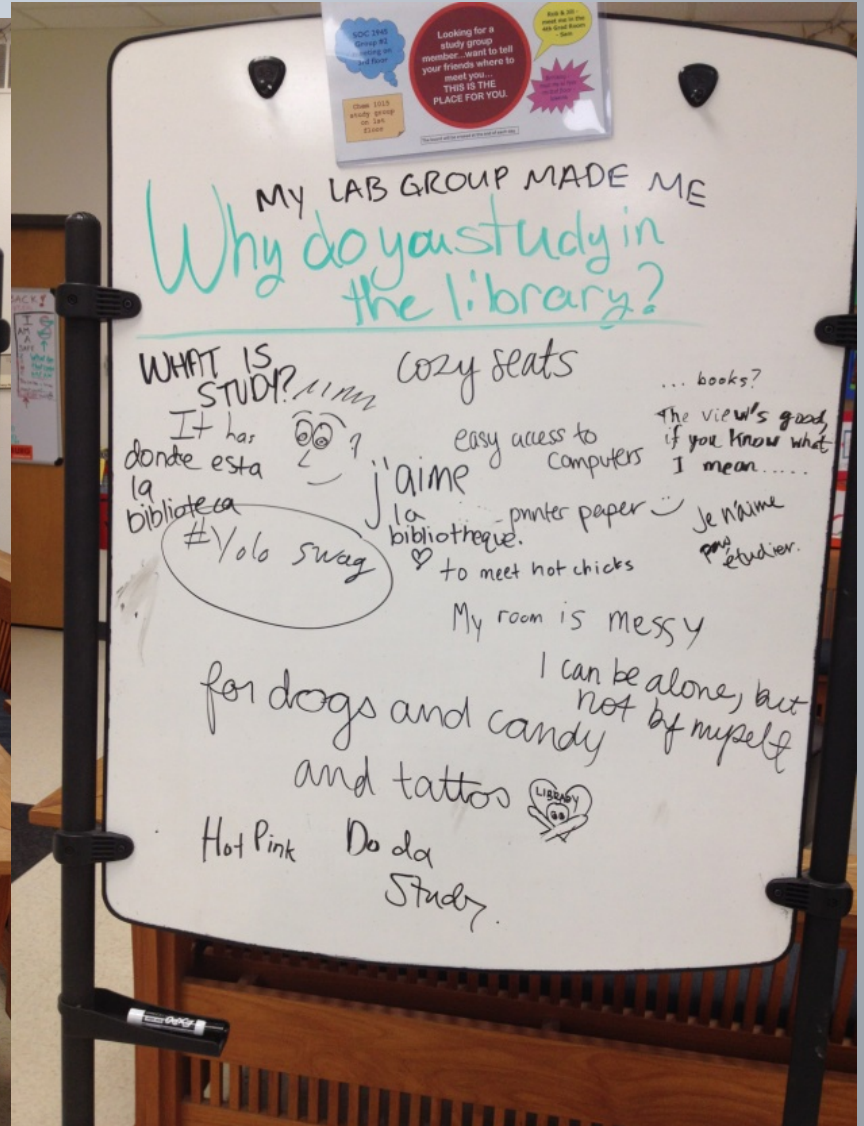 SOC 2945
Group #2
meeting on
3rd floor
Looking for a
study group
member...want to tell
your friends where to
meet you...
THIS IS THE
PLACE FOR YOU.
meet me in the
4th Grad Room
- 5am
Chem 1015
study group
on 1st
floor
MY LAB GROUP MADE ME
Why do you study in
the library?
WHAT IS
STUDY?
It has
donde esta
la
biblioteca
#Yolo swag
cozy seats
easy access to
computers
j'aime
la
bibliotheque.
printer paper
to meet hot chicks
... books?
The view's good,
if you know what
I mean.....
Je n'aime
pas
étudier.
My room is messy
I can be alone, but
not by myself
for dogs and candy
and tattos
LIBRARY
Hot Pink
Do da
Study.
EXPO